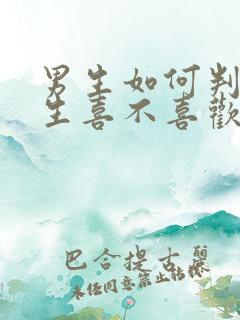 男生如何判
生喜不喜歡
巴合提古麗
未任同意禁止转移